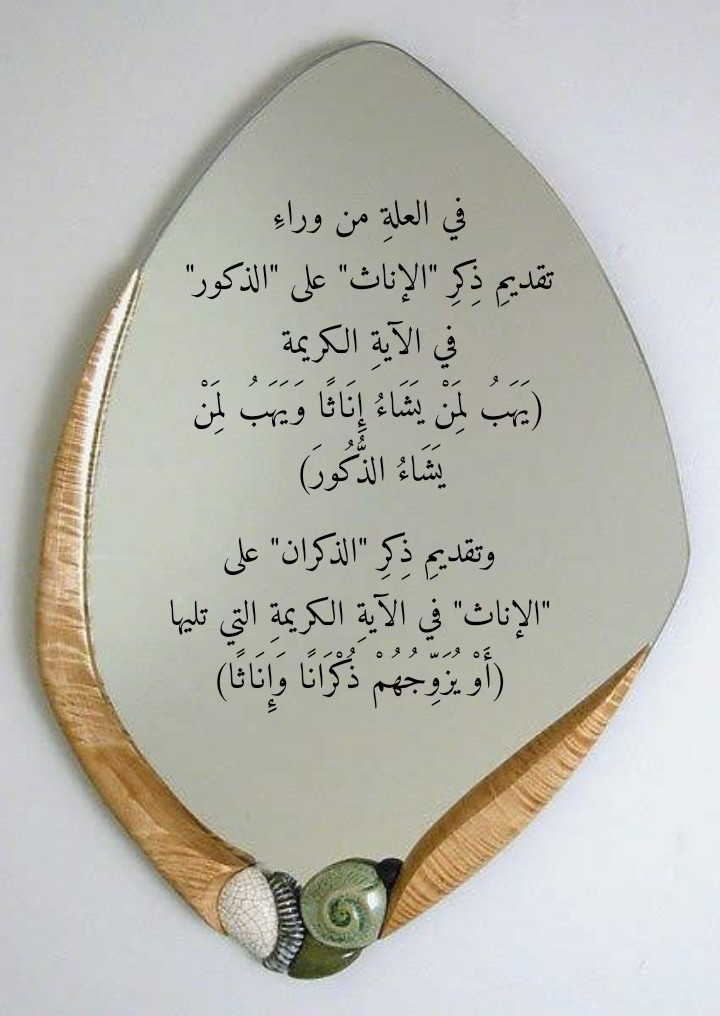 في العلةِ من وراءِ
تقديمِ ذِكرِ "الإناث" على "الذكور"
في الآيةِ الكريمة
(يَهَبُ لِمَنْ يَشَاءُ إِنَاثًا وَيَهَبُ لِمَنْ
يَشَاءُ الذُّكُورَ)
وتقديمِ ذِكرِ "الذكران" على
"الإناث" في الآيةِ الكريمةِ التي تليها
(أَوْ يُزَوِّجُهُمْ ذُكْرَانًا وَإِنَاثًا)